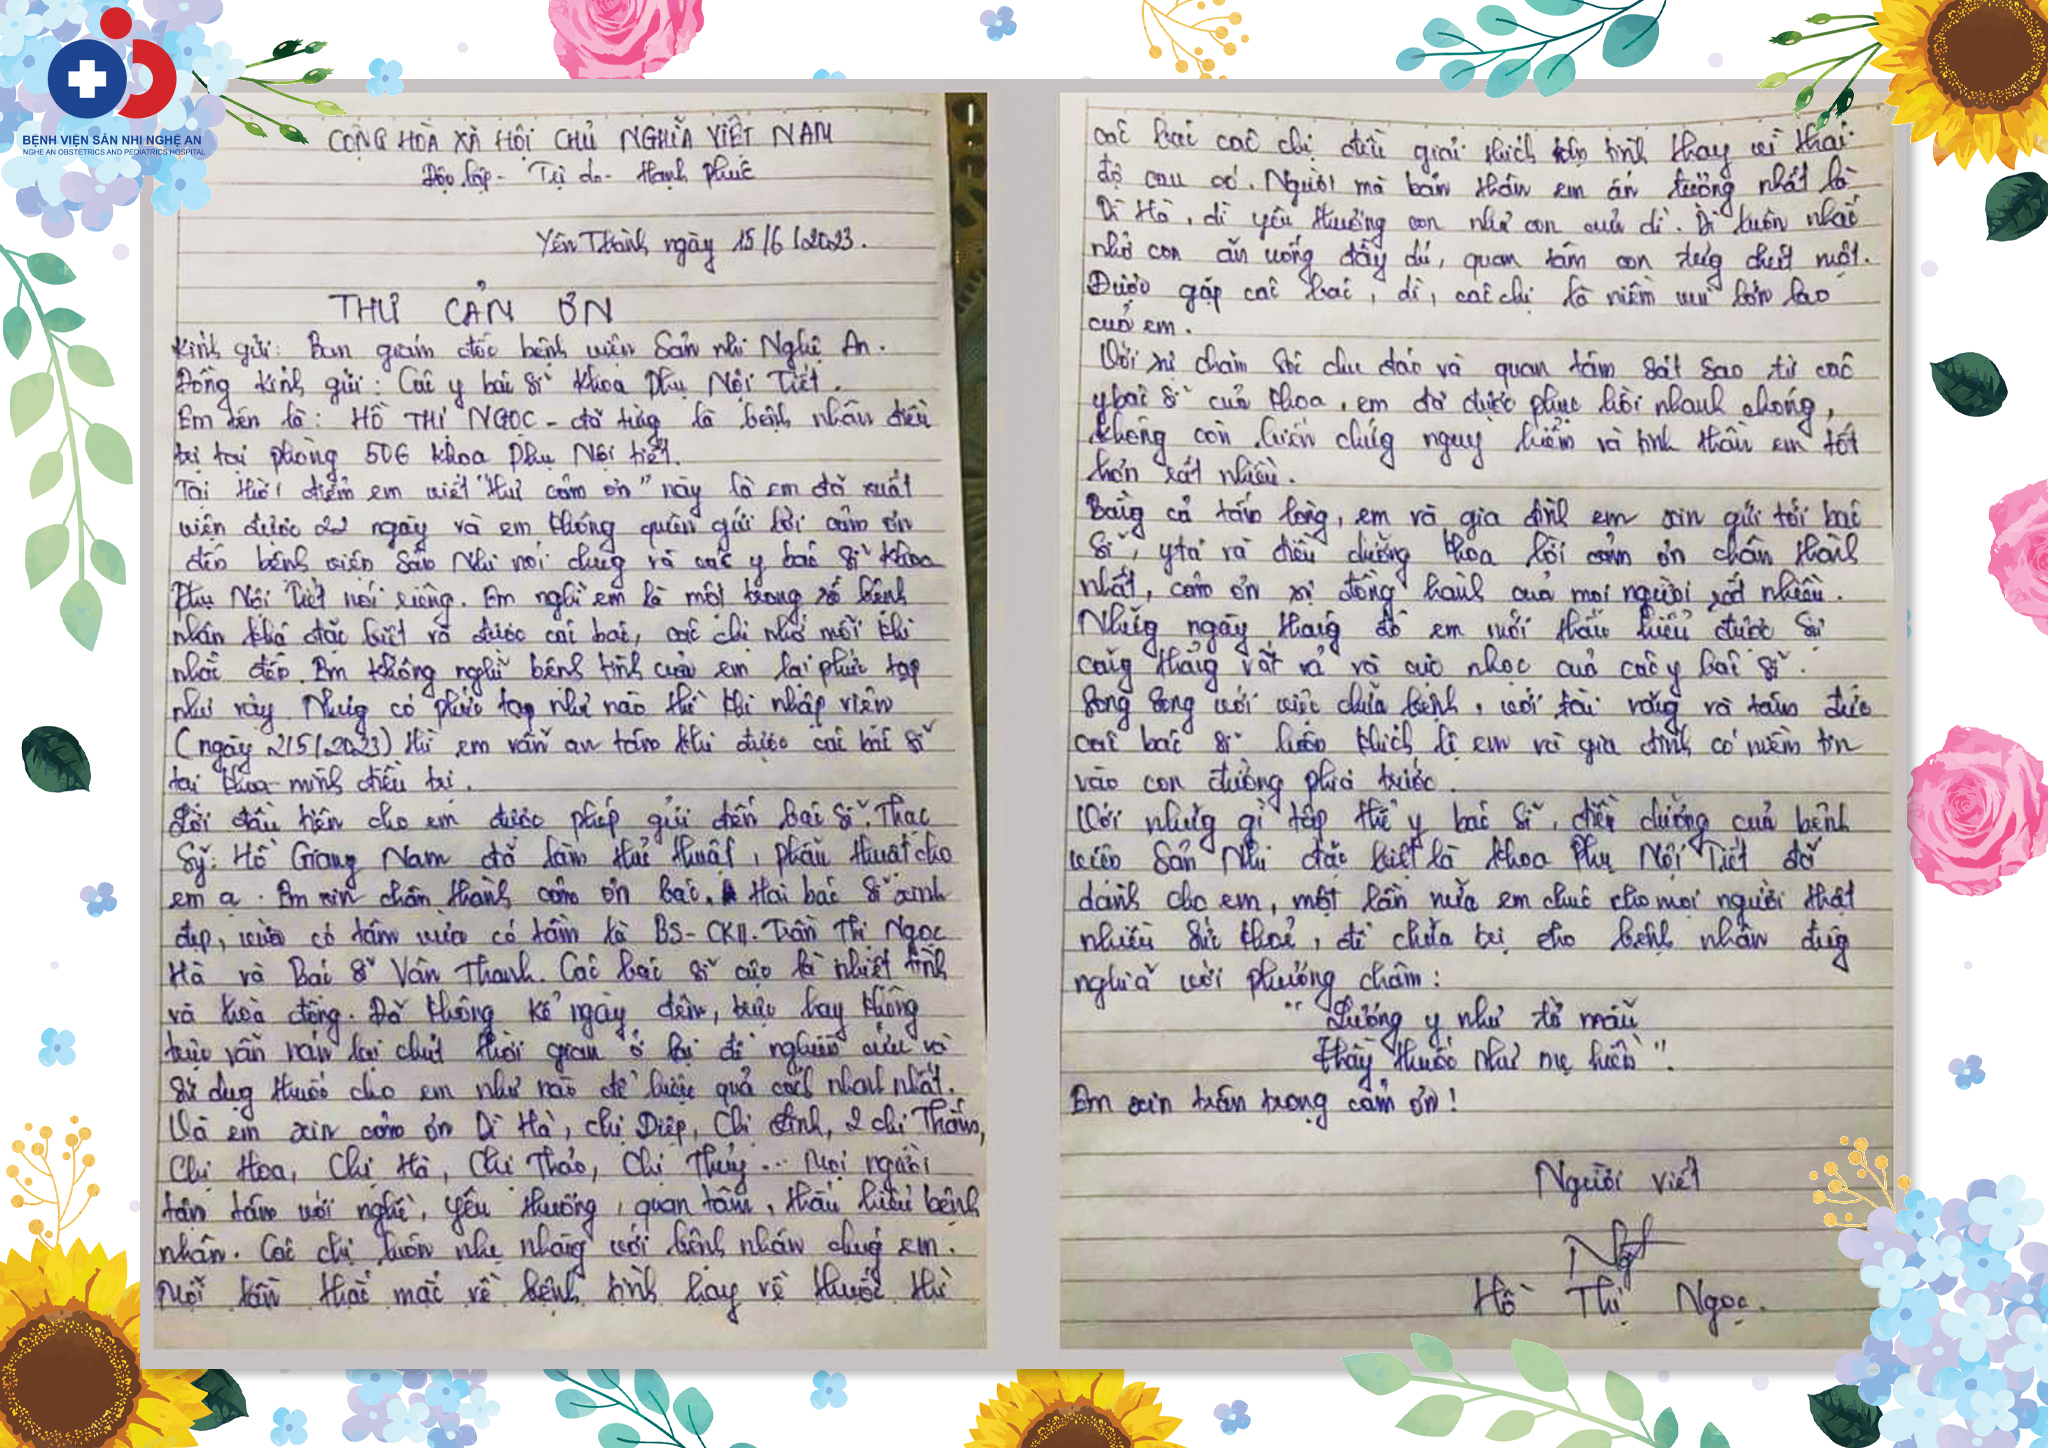 BỆNH VIỆN SẢN NHI NGHỆ AN
NGHE AN OBSTETRICS AND PEDIATRICS HOSPITAL
CỘNG HÒA XÃ HỘI CHỦ NGHĨA VIỆT NAM
Độc lập - Tự do - Hạnh phúc
Yên Thành ngày 15/6/2023.
THƯ CẢM ƠN
Kính gửi: Ban giám đốc bệnh viện Sản nhi Nghệ An.
Đồng kính gửi: Các y bác sĩ khoa Phụ Nội Tiết.
Em tên là: HỒ THỊ NGỌC - đã từng là bệnh nhân điều
trị tại phòng 506 khoa Phụ Nội tiết.
Tại thời điểm em viết "thư cảm ơn" này là em đã xuất
viện được 22 ngày và em không quên gửi lời cảm ơn
đến bệnh viện Sản Nhi nói chung và các y bác sĩ khoa
Phụ Nội Tiết nói riêng. Em nghĩ em là một trong số bệnh
nhân khá đặc biệt và được các bác, các chị nhớ mỗi khi
nhắc đến. Em không nghĩ bệnh tình của em lại phức tạp
như này. Nhưng có phức tạp như nào thì khi nhập viện
(ngày 2/5/2023) thì em vẫn an tâm khi được các bác sĩ
tại khoa mình điều trị.
Lời đầu tiên cho em được phép gửi đến Bác Sĩ. Thạc
Sỹ: Hồ Giang Nam đã làm thủ thuật, phẫu thuật cho
em ạ. Em xin chân thành cảm ơn Bác, Hai bác sĩ xinh
đẹp, vừa có tâm vừa có tầm là BS-CKII. Trần Thị Ngọc
Hà và Bác Sĩ Vân Thanh. Các bác sĩ cực kì nhiệt tình
và hoà đồng. Đã không kể ngày đêm, trực hay không
trực vẫn nán lại chút thời gian ở lại để nghiên cứu và
sử dụng thuốc cho em như nào để hiệu quả cách nhanh nhất.
Và em xin cảm ơn Dì Hà, chị Diệp, Chị Định, 2 chị Thắm,
Chị Hoa, Chị Hà, Chị Thảo, Chị Thủy... Mọi người
tận tâm với nghề, yêu thương, quan tâm, thấu hiểu bệnh
nhân. Các chị luôn nhẹ nhàng với bệnh nhân chúng em.
Mỗi lần thắc mắc về bệnh tình hay về thuốc thì
các bác các chị đều giải thích tận tình thay vì thái
độ cau có. Người mà bản thân em ấn tượng nhất là
Dì Hà, dì yêu thương con như con của dì. Dì luôn nhắc
nhở con ăn uống đầy đủ, quan tâm con từng chút một.
Được gặp các bác, dì, các chị là niềm vui lớn lao
của em.
Với sự chăm sóc chu đáo và quan tâm sát sao từ các
y bác sĩ của khoa, em đã được phục hồi nhanh chóng,
không còn biến chứng nguy hiểm và tinh thần em tốt
hơn rất nhiều.
Bằng cả tấm lòng, em và gia đình em xin gửi tới bác
sĩ, y tá và điều dưỡng khoa lời cảm ơn chân thành
nhất, cảm ơn sự đồng hành của mọi người rất nhiều.
Những ngày tháng đó em mới thấu hiểu được sự
căng thẳng vất vả và cực nhọc của các y bác sĩ.
Song song với việc chữa bệnh, với tài năng và tâm đức
các bác sĩ luôn khích lệ em và gia đình có niềm tin
vào con đường phía trước.
Với những gì tập thể y bác sĩ, điều dưỡng của bệnh
viện Sản Nhi đặc biệt là khoa Phụ Nội Tiết đã
dành cho em, một lần nữa em chúc cho mọi người thật
nhiều sức khoẻ, để chữa trị cho bệnh nhân đúng
nghĩa với phương châm:
"Lương y như từ mẫu
Thầy thuốc như mẹ hiền".
Em xin trân trọng cảm ơn!
Người viết
Hồ Thị Ngọc.